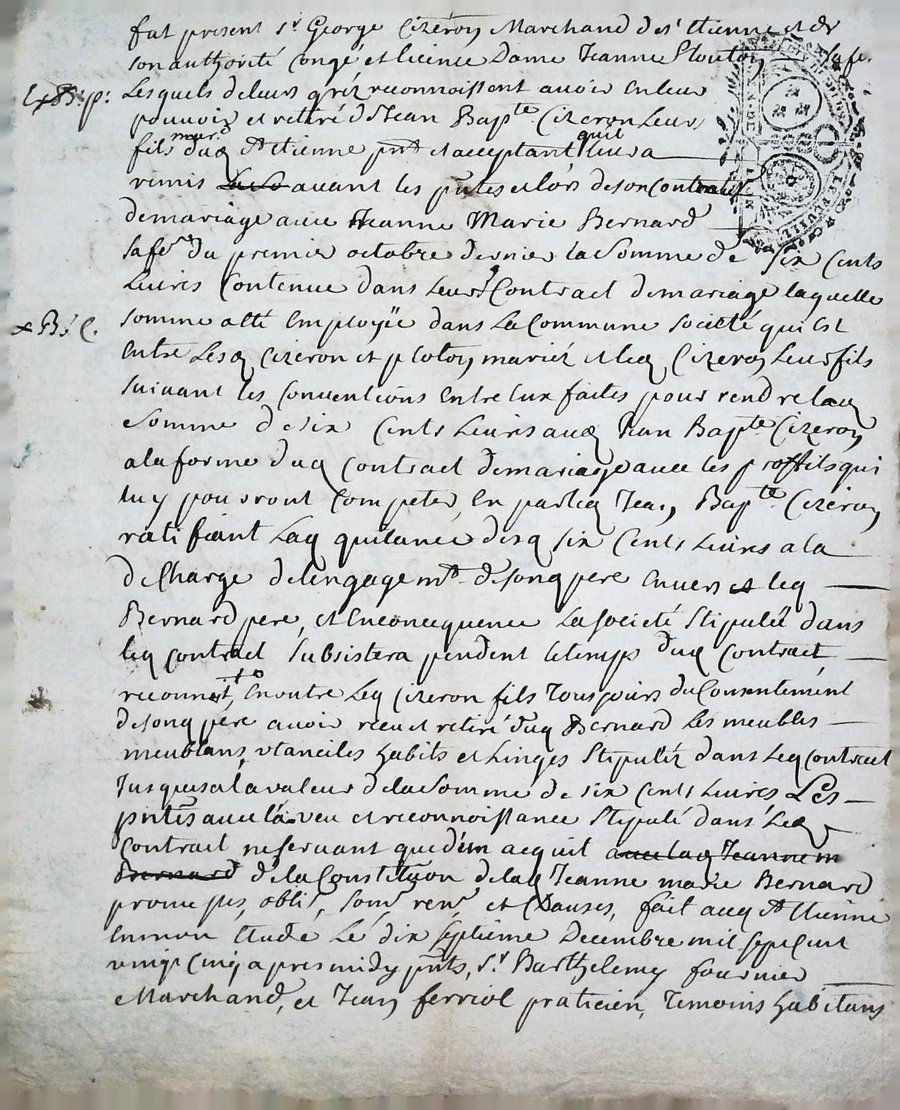 fut present Sr George Cizeron Marchand de st Etienne et de
son authorité congé et licence Dame Jeanne Ploton sa fe.
Exp. p: Lesquels de leurs gréz reconnoissent avoir en leur
pouvoir et retiré d Jean Bapte Cizeron leur
fils marᵈ dud st Etienne pnt et acceptant quil leur a
remis avant les pntes et lors de son Contract
de mariage avec Jeanne Marie Bernard
sa fe du premier octobre dernier la somme de six cents
Livres Contenue dans leur Contract de mariage laquelle
somme a êté Employëe dans La Commune société qui est
Entre Lesq Cizeron et ploton mariéz et leq Cizeron leur fils
suivant les Conventions Entre Eux faites pour rendre laq
somme de six Cents Livres aud Jean Bapte Cizeron
a la forme dud Contract de mariage avec les proffits qui
luy pourront Competer, En par leq Jean Bapte Cizeron
ratifiant Laq quitance desq six Cents Livres a la
deCharge de lengagemt de sonq pere Envers leq
Bernard pere, et En concequence La societé stipulée dans
leq Contract subsistera pendent le temps dud Contract,
reconnoit, En outre Leq Cizeron fils Tousjours du Consentement
de sonq pere avoir receu et retiré dud Bernard Les meubles
meublans, Utanciles habits et Linges stipuléz dans Leq Contract
Jusques a la valeur de la somme de six Cents Livres Les
pntes avec la veu et reconnoissance stipulé dans Leq
Contract ne servant que d'un acquit avec laq Jeanne m
Bernard de la Constituon de laq Jeanne marie Bernard
promesses, oblié, soumˢ, renˢ et Clauses, fait aud st Etienne
En mon Etude Le dix septieme Decembre mil sept Cent
vingt Cinq apres midy pnts, Sr Barthelemy fournier
Marchand, et Jean ferriol praticien, Temoins habitans